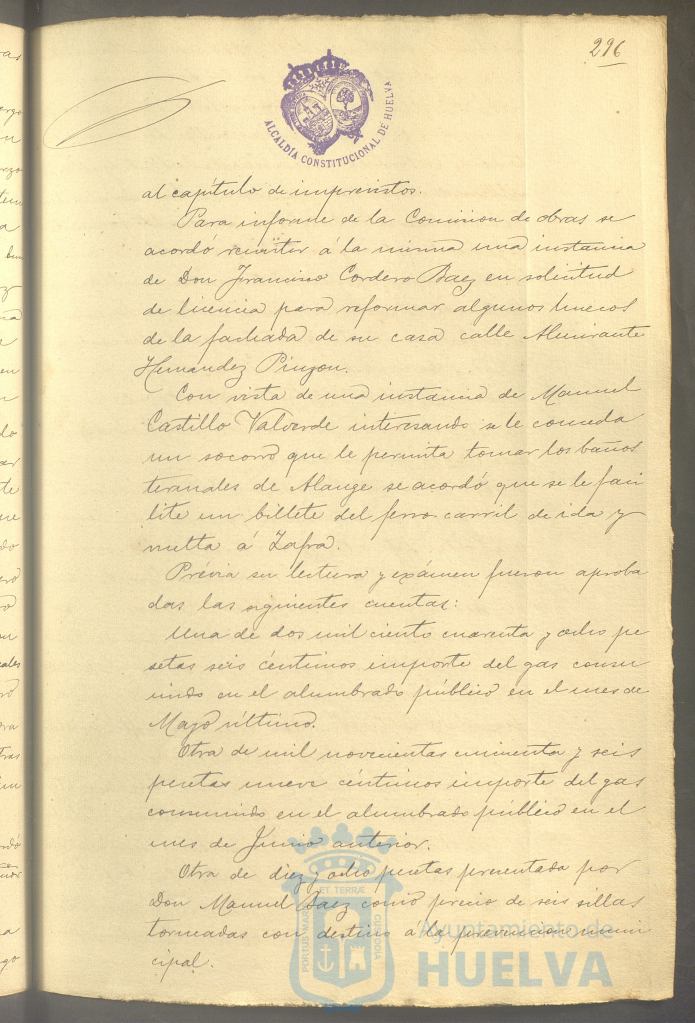 296
ALCALDÍA CONSTITUCIONAL DE HUELVA
al capítulo de imprevistos.
Para informe de la Comision de obras se
acordó remitir á la misma una instancia
de Don Francisco Cordero Baez en solicitud
de licencia para reformar algunos huecos
de la fachada de su casa calle Almirante
Hernandez Pinzon.
Con vista de una instancia de Manuel
Castillo Valverde interesando se le conceda
un socorro que le permita tomar los baños
termales de Alange se acordó que se le faci
lite un billete del ferro-carril de ida y
vuelta á Zafra.
Prévia su lectura y exámen fueron aproba
das las siguientes cuentas:
Una de dos mil ciento cuarenta y ocho pe
setas seis céntimos importe del gas consu
mido en el alumbrado público en el mes de
Mayo último.
Otra de mil novecientas cincuenta y seis
pesetas nueve céntimos importe del gas
consumido en el alumbrado público en el
mes de Junio anterior.
Otra de diez y ocho pesetas presentada por
Don Manuel Baez como precio de seis sillas
torneadas con destino á la prevencion muni
cipal.
PORTUS MARIS ET TERRÆ CUSTODIA
Ayuntamiento de
HUELVA